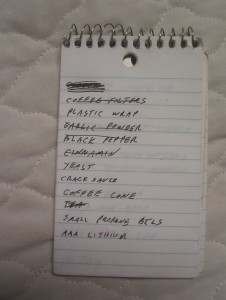 COFFEE FILTERS
PLASTIC WRAP
GARLIC POWDER
BLACK PEPPER
CINNAMIN
YEAST
CRACK SAUCE
COFFEE CONE
TEA
SMALL PROPANE BTLS
AAA LITHIUM